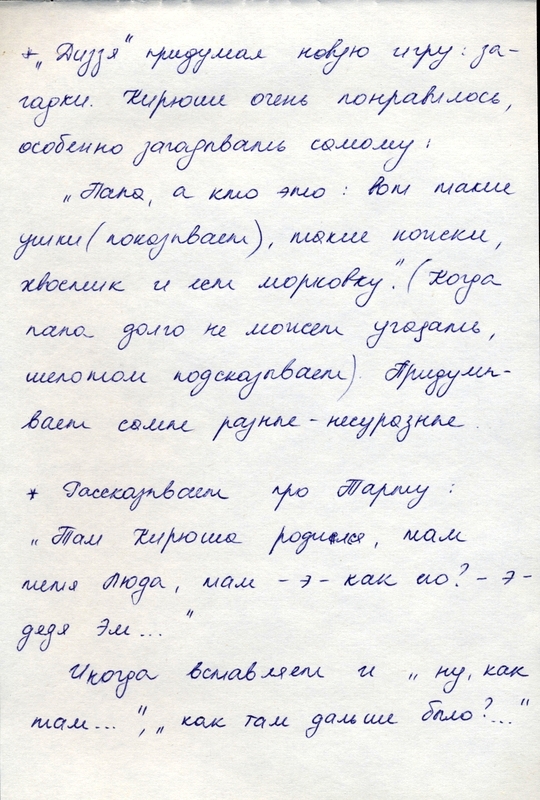 * „Диззя" придумал новую игру: за-
гадки. Кирюше очень понравилось,
особенно загадывать самому:
„Папа, а кто это: вот такие
ушки (показывает), такие ножки,
хвостик и ест морковку". (Когда
папа долго не может угадать,
шепотом подсказывает). Придумы-
вает самые разные-несуразные.
* Рассказывает про Тарту:
„Там Кирюша родился, там
тетя Люда, там – э – как его? – э –
дядя Эм..."
Иногда вставляет и „ну, как
там...", „как там дальше было?..."